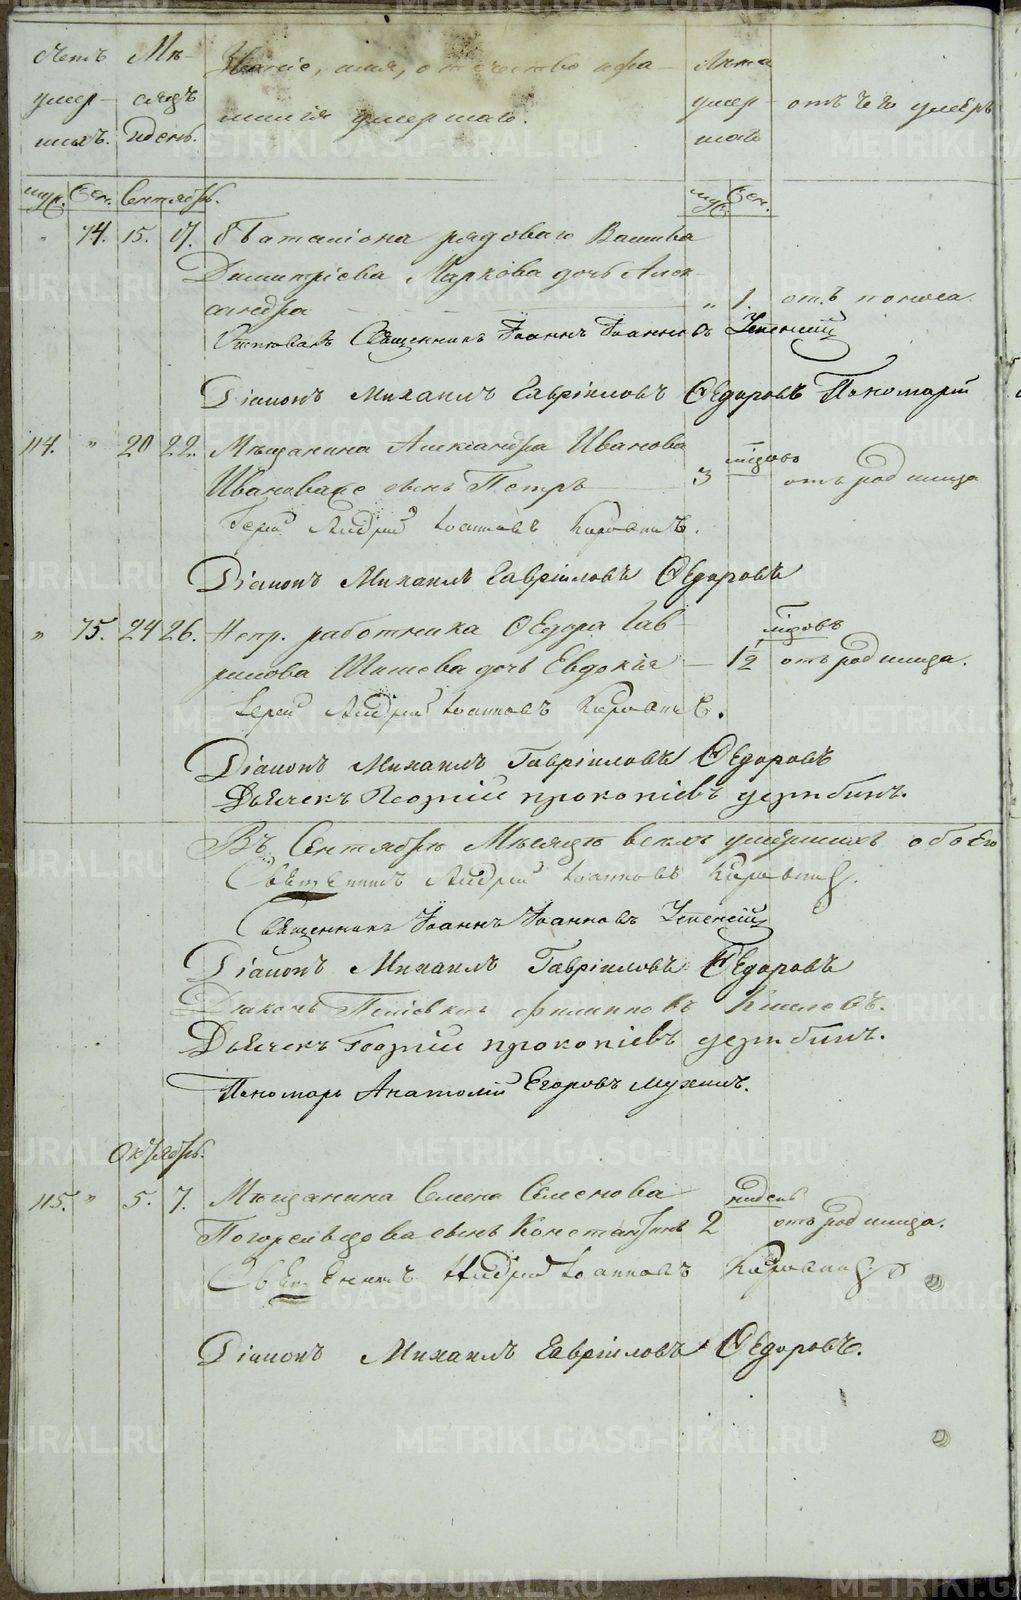 счетъ умер- шихъ.
Мѣ- сяцъ и день.
Званіе, имя, отчество и фа-
милія умершаго.
Лѣта умер- шаго
отъ чего умеръ
муж. жен. Сентябрь. муж. жен.
" 74. 15. 17. 8 Баталіона рядоваго
Димитріева Маркова дочь Алек-
сандра " 1. отъ поноса.
Священникъ Іоаннъ Іоанновъ Успенскій
Діаконъ Михаилъ Гавріиловъ Ѳедоровъ Пономарь
114. " 20 22. Мѣщанина Александра Иванова
Иванова сынъ Петръ 3 отъ родимца
Іерей Андрей Іоанновъ
Діаконъ Михаилъ Гавріиловъ Ѳедоровъ
" 75. 24 26. Непр. работника Ѳедора Гав-
рилова дочь Евдокія 1/2 отъ родимца.
Іерей Андрей Іоанновъ
Діаконъ Михаилъ Гавріиловъ Ѳедоровъ
Дьячекъ Георгій Прокопіевъ
Въ Сентябрѣ Мѣсяцѣ всехъ умершихъ обоего
Священникъ Андрей Іоанновъ
Священникъ Іоаннъ Іоанновъ Успенскій
Діаконъ Михаилъ Гавріиловъ Ѳедоровъ
Филипповъ Киселевъ.
Дьячекъ Георгій Прокопіевъ
Пономарь Анатолій Егоровъ Мухинъ.
Октябрь.
115. " 5. 7. Мѣщанина Семена Семенова
сынъ Константинъ 2 недель отъ родимца.
Священникъ Андрей Іоанновъ
Діаконъ Михаилъ Гавріиловъ Ѳедоровъ.
METRIKI.GASO-URAL.RU